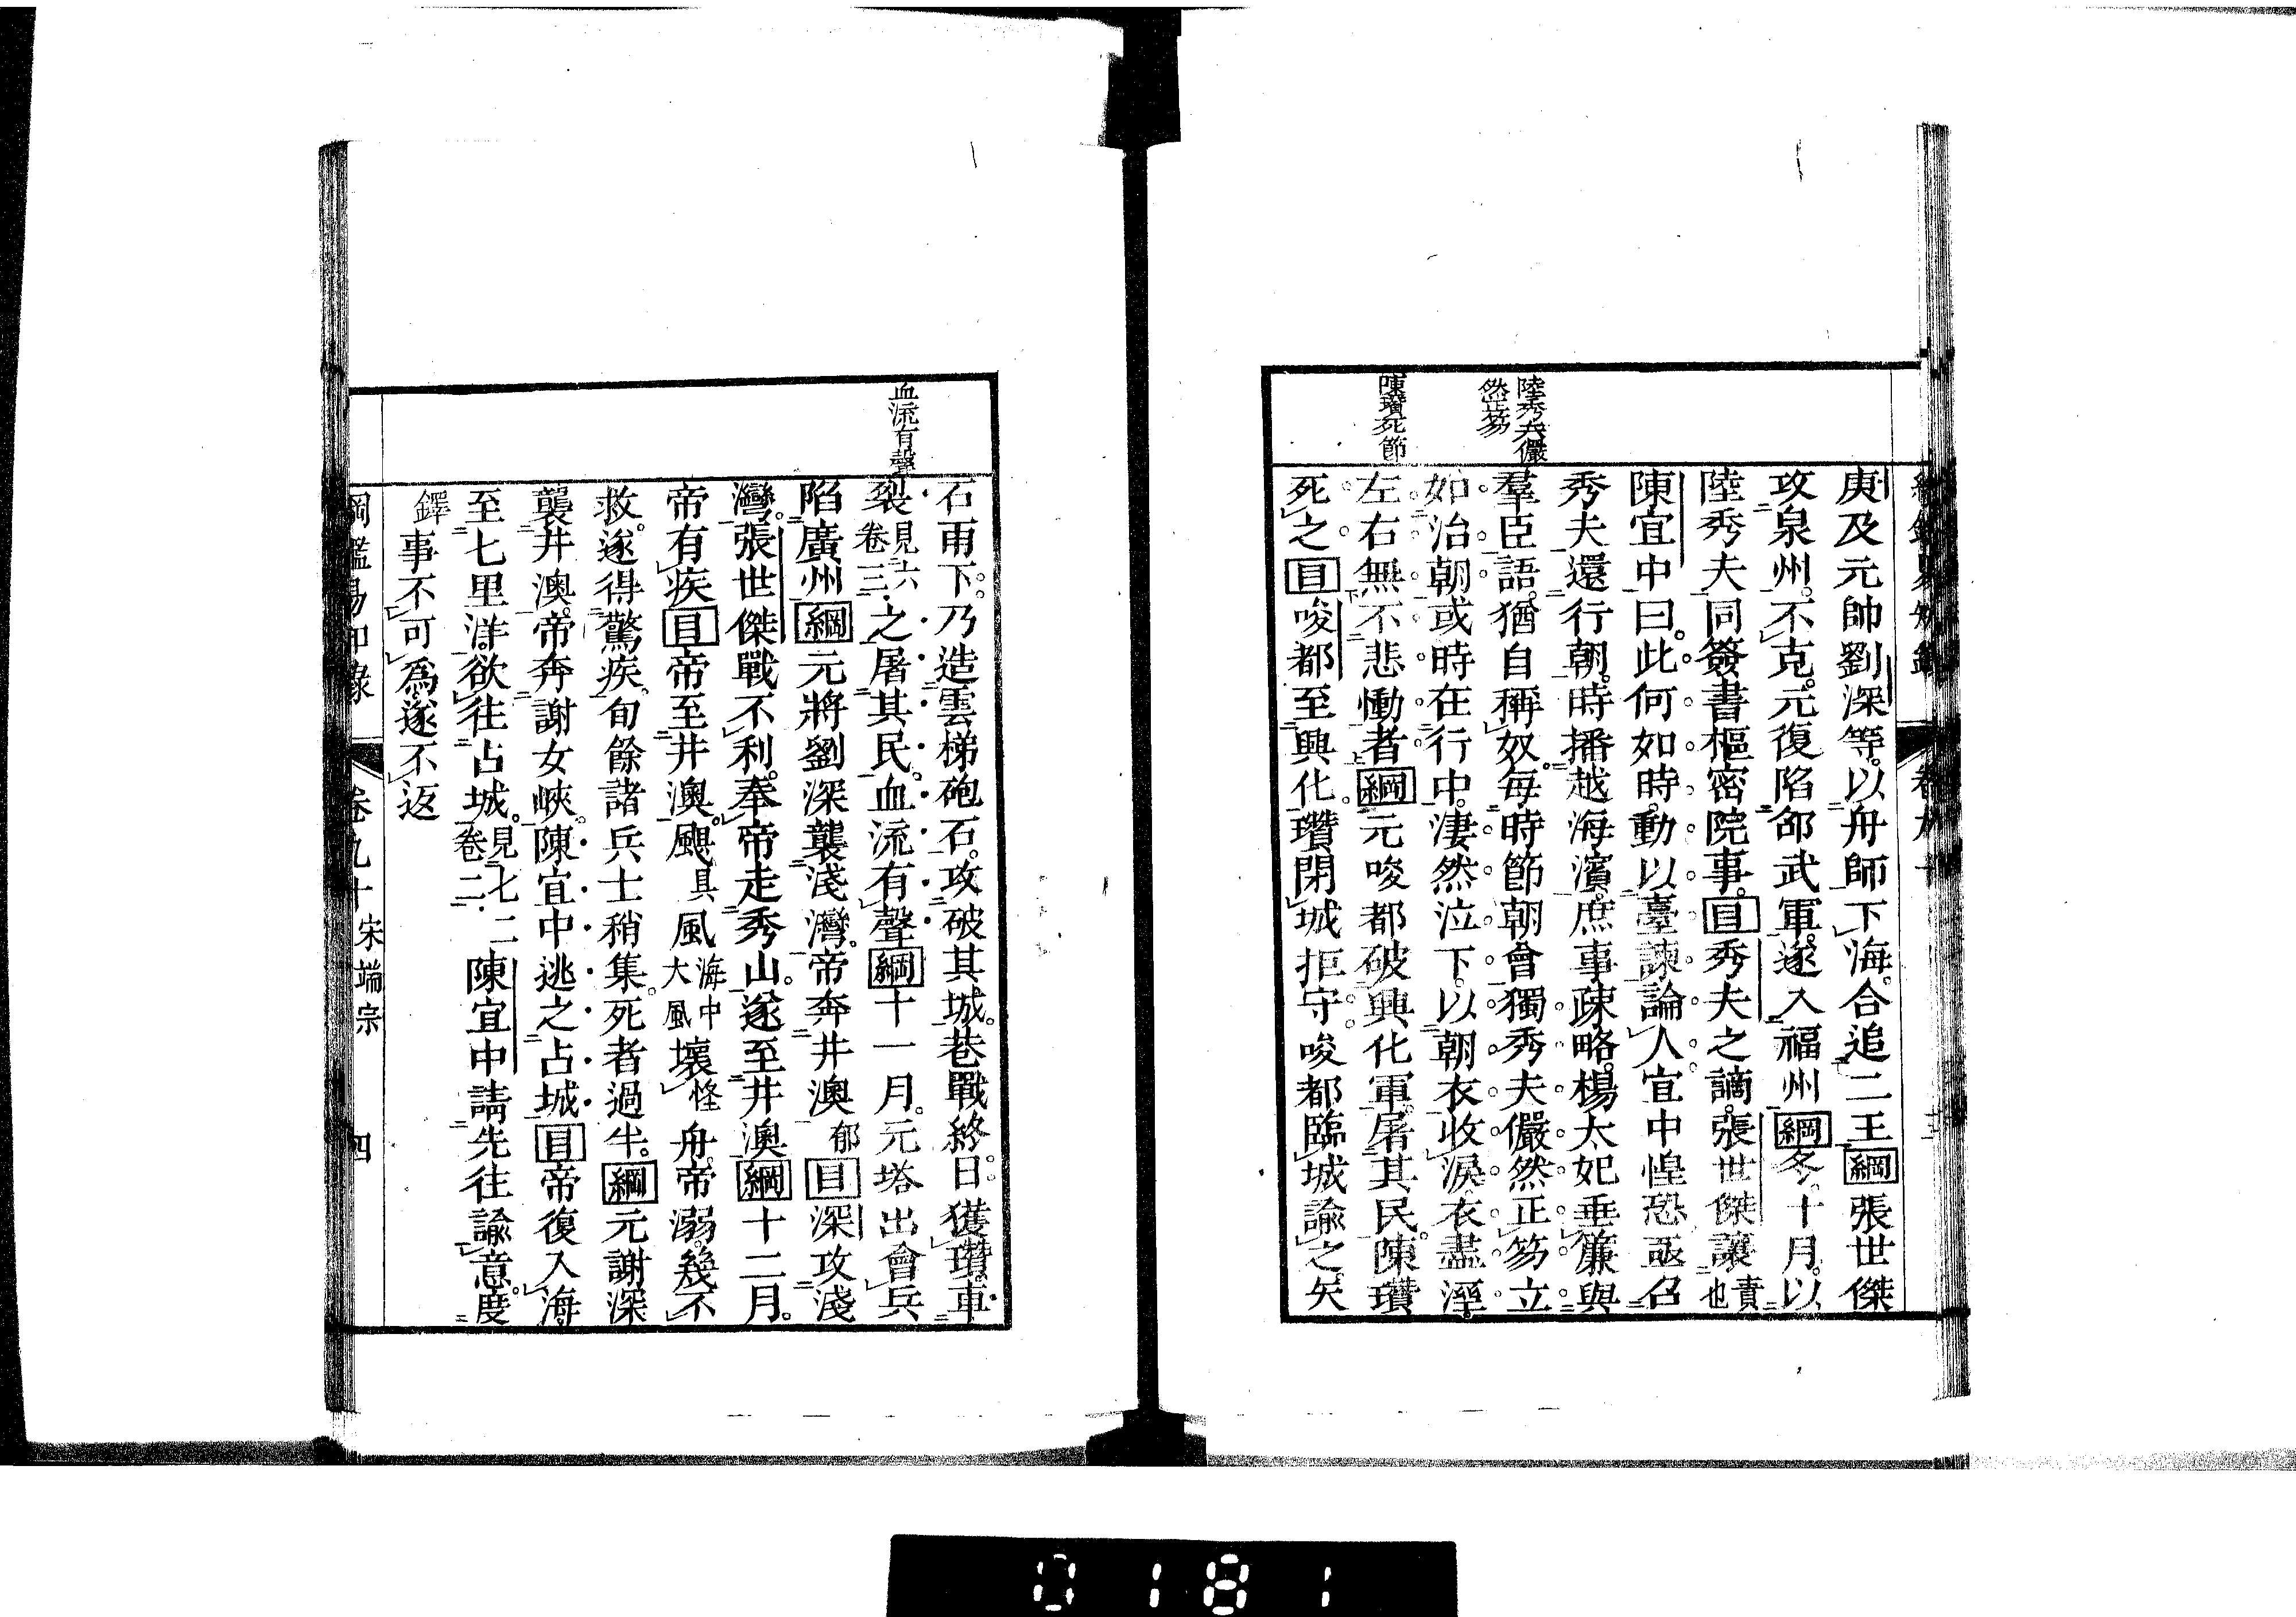 陸秀夫儼
然正笏
陳瓚死節
庚及元帥劉深等以舟師下海合追二王綱張世傑
攻泉州不克元復陷邵武軍遂入福州綱冬十月以
陸秀夫同簽書樞密院事目秀夫之謫張世傑讓責也
陳宜中曰此何如時動以臺諫論人宜中惶恐亟召
秀夫還行朝時播越海濱庶事疎略楊太妃垂簾與
羣臣語猶自稱奴每時節朝會獨秀夫儼然正笏立
如治朝或時在行中淒然泣下以朝衣收淚衣盡溼
左右無不悲慟者綱元唆都破興化軍屠其民陳瓚
死之目唆都至興化瓚閉城拒守唆都臨城諭之矢
血流有聲
石雨下乃造雲梯砲石攻破其城巷戰終日獲瓚車
裂見六卷三之屠其民血流有聲綱十一月元塔出會兵
陷廣州綱元將劉深襲淺灣帝奔井澳郁目深攻淺
灣張世傑戰不利奉帝走秀山遂至井澳綱十二月
帝有疾目帝至井澳颶具風海中大風壞怪舟帝溺幾不
救遂得驚疾旬餘諸兵士稍集死者過半綱元謝深
襲井澳帝奔謝女峽陳宜中逃之占城目帝復入海
至七里洋欲往占城見七二卷二陳宜中請先往諭意度
鐸事不可為遂不返
綱鑑易知錄 卷九十 宋端宗 四
0181